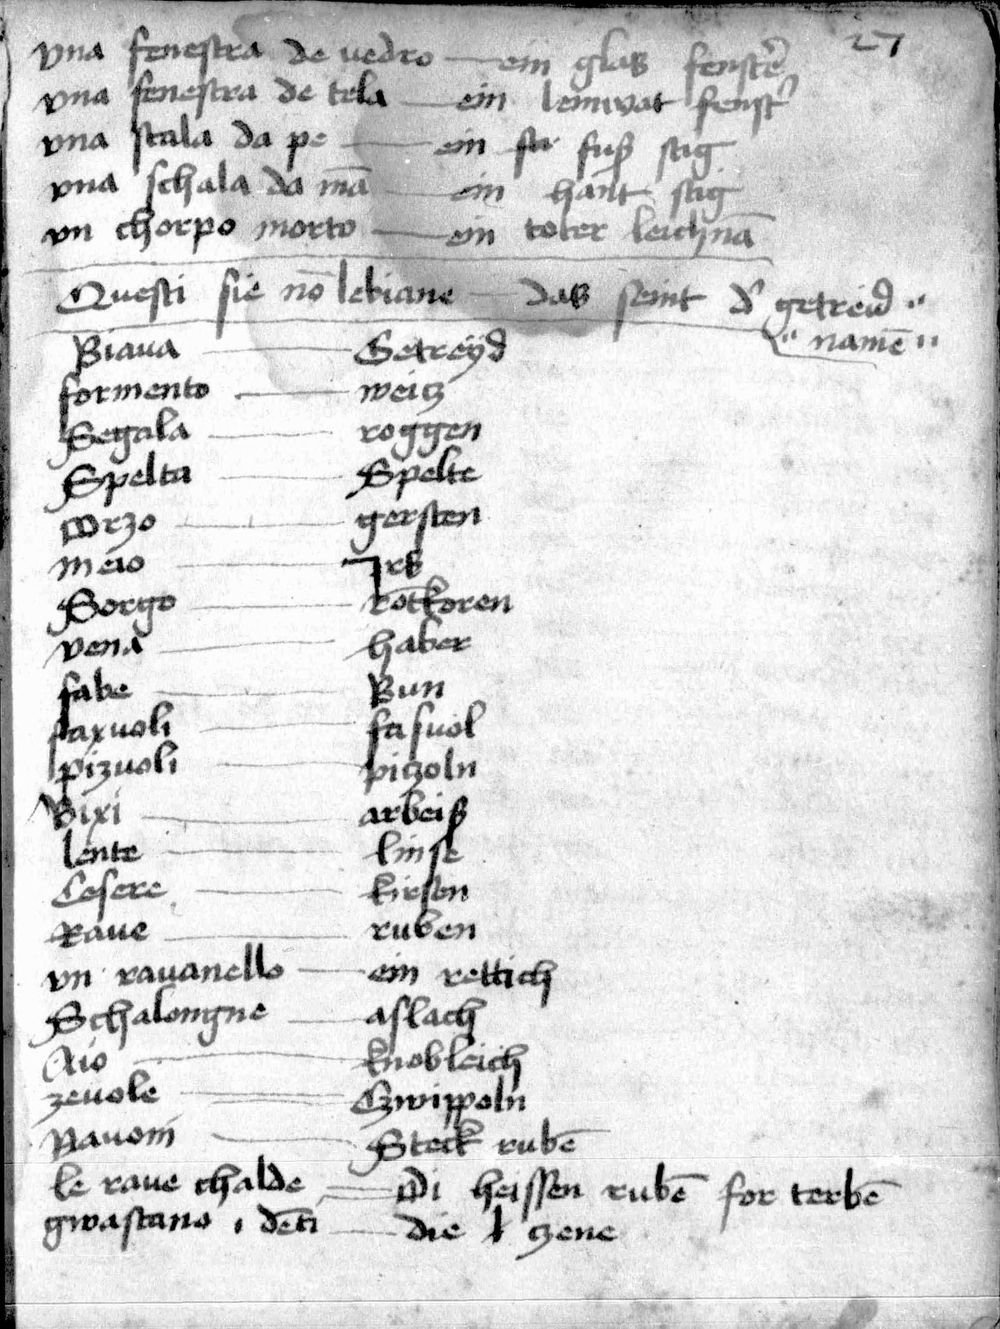 27
vna fenestra de vedro — ein glas fenster̄
vna fenestra de tela — ein leinwat fenst'
vna scala da pe — ein fuß stig
vna schala da mā — ein hant stig
vn chorpo morto — ein toter leichnā
Questi sie nō le biane — das seint d' getreid
namē
Biaua — Getreyd
formento — weitz
Segala — roggen
Spelta — Spelte
Orzo — gersten
meio — Hirs
Sorgo — rotkoren
vena — haber
fabe — Bun
faxuoli — fasuol
pizuoli — piczoln
Bixi — arbeiß
lente — linse
Cesere — kirsen
Raue — ruben
vn rauanello — ein rettich
Schalongne — aslach
Aio — knobleich
zeuole — Czwippoln
Nauoni — Steck rubē
le raue chalde — Di heissen rubē for terbē
gwastano i dēti — die czene